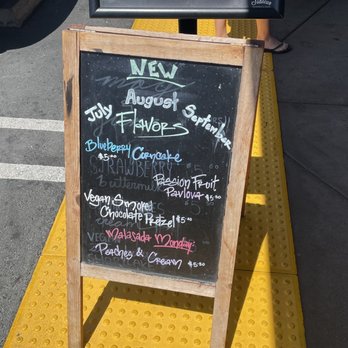 NEW
July August September
Flavors
Blueberry Corncake
$5.00
Passion Fruit
Pavlova $5.00
Vegan Smores
Chocolate Pretzel $5.00
Malasada Monday:
Peaches & Cream $5.00